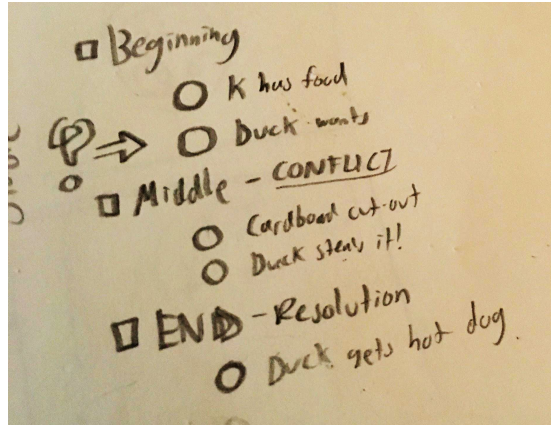 Beginning
K has food
? ⇒ Duck wants
Middle - CONFLICT
Cardboard cut-out
Duck steals it!
END - Resolution
Duck gets hot dog.